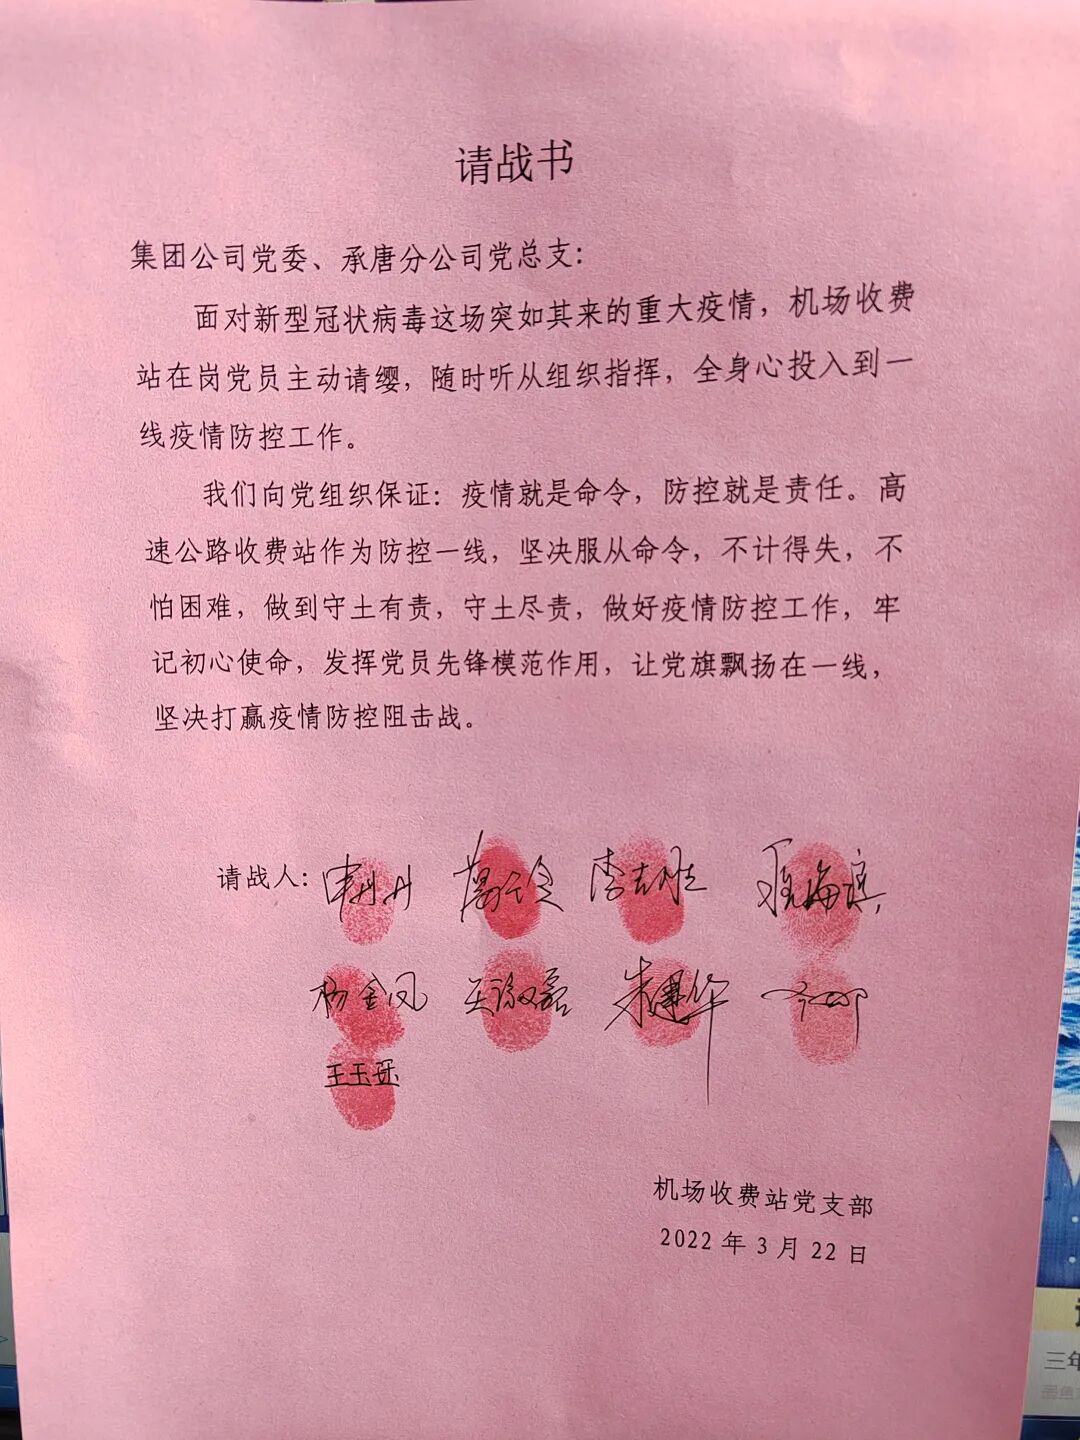 请战书
集团公司党委、承唐分公司党总支：
面对新型冠状病毒这场突如其来的重大疫情，机场收费
站在岗党员主动请缨，随时听从组织指挥，全身心投入到一
线疫情防控工作。
我们向党组织保证：疫情就是命令，防控就是责任。高
速公路收费站作为防控一线，坚决服从命令，不计得失，不
怕困难，做到守土有责，守土尽责，做好疫情防控工作，牢
记初心使命，发挥党员先锋模范作用，让党旗飘扬在一线，
坚决打赢疫情防控阻击战。
请战人： 李志胜
杨金凤 朱建华
王玉珏
机场收费站党支部
2022 年 3 月 22 日
三年